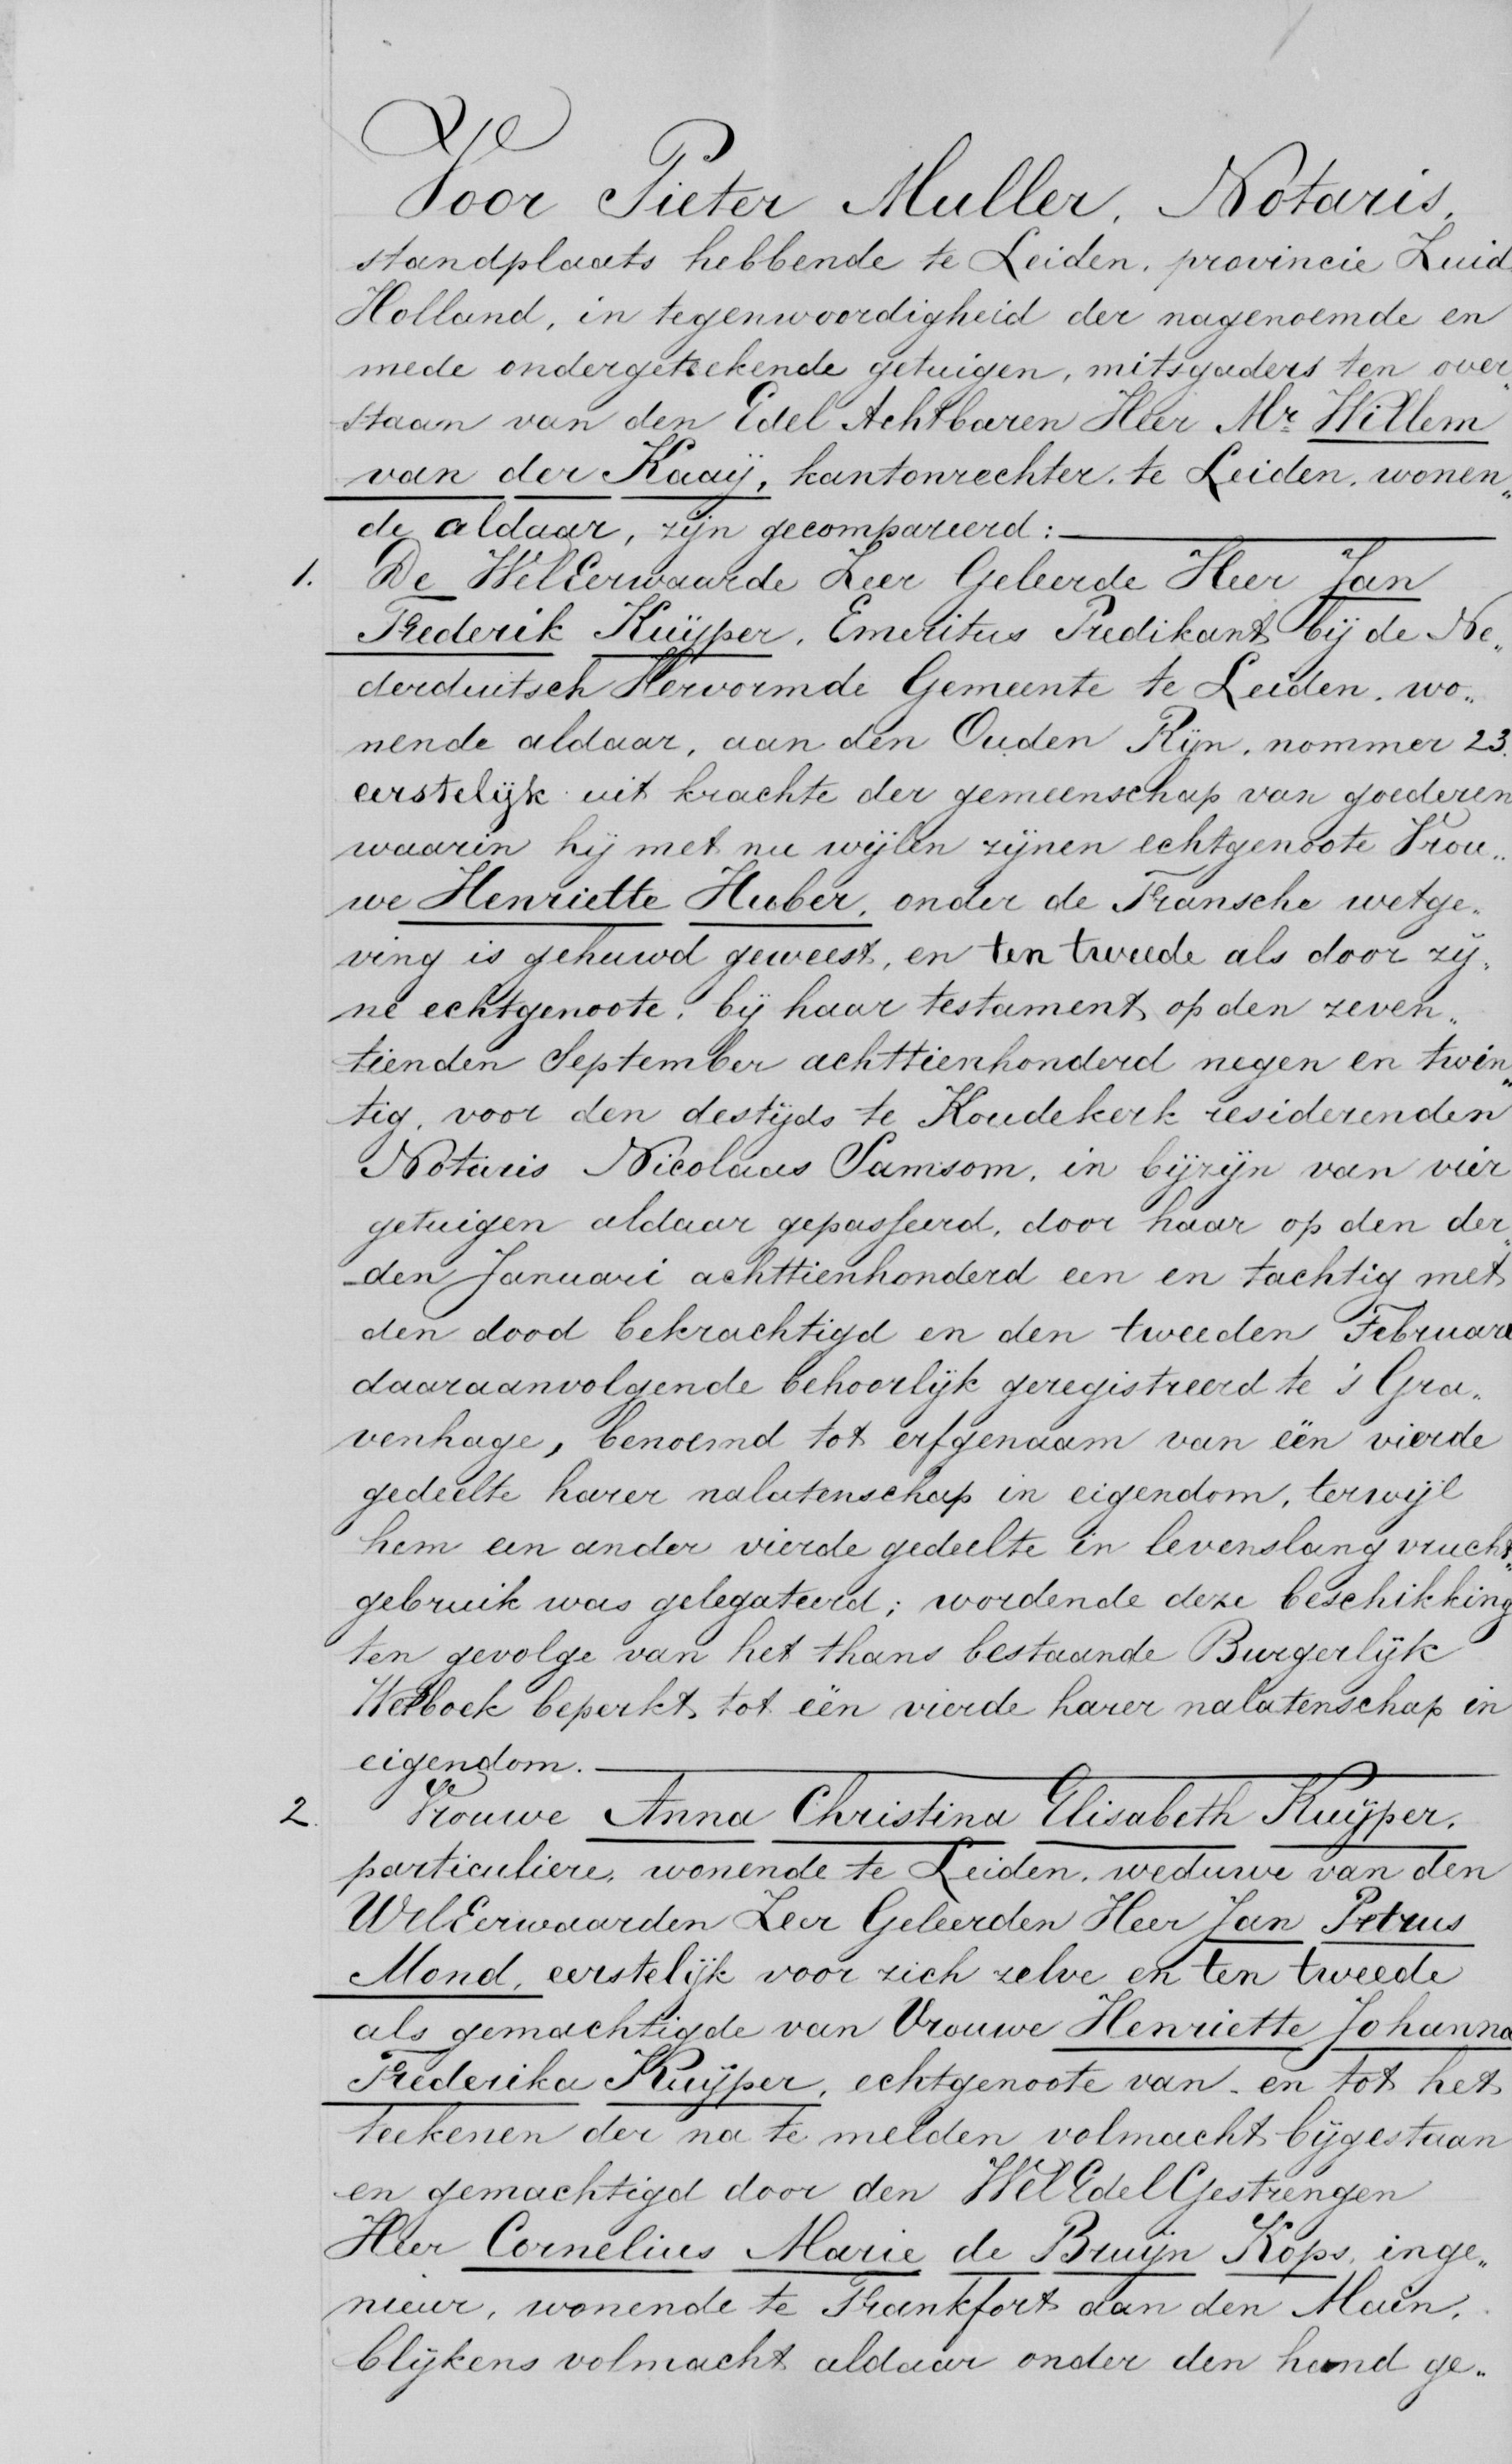 Voor Pieter Muller, Notaris,
standplaats hebbende te Leiden, provincie Zuid
Holland, in tegenwoordigheid der nagenoemde en
mede ondergeteekende getuigen, mitsgaders ten over„
staan van den Edel Achtbaren Heer Mr. Willem
van der Kaaij, kantonrechter te Leiden, wonen„
de aldaar, zijn gecompareerd:
1. De WelEerwaarde Zeer Geleerde Heer Jan
Frederik Kuijper, Emeritus Predikant bij de Ne„
derduitsch Hervormde Gemeente te Leiden, wo„
nende aldaar, aan den Ouden Rijn, nommer 23.
eerstelijk uit krachte der gemeenschap van goederen
waarin hij met nu wijlen zijnen echtgenoote Vrou„
we Henriette Huber, onder de Fransche wetge„
ving is gehuwd geweest, en ten tweede als door zij„
ne echtgenoote, bij haar testament op den zeven„
tienden September achttienhonderd negen en twin„
tig, voor den destijds te Koudekerk residerenden
Notaris Nicolaas Samsom, in bijzijn van vier
getuigen aldaar gepasseerd, door haar op den der„
den Januari achttienhonderd een en tachtig met
den dood bekrachtigd en den tweeden Februari
daaraanvolgende behoorlijk geregistreerd te 's Gra„
venhage, benoemd tot erfgenaam van één vierde
gedeelte harer nalatenschap in eigendom, terwijl
hem een ander vierde gedeelte in levenslang vrucht„
gebruik was gelegateerd; wordende deze beschikking
ten gevolge van het thans bestaande Burgerlijk
Wetboek beperkt tot één vierde harer nalatenschap in
eigendom.
2. Vrouwe Anna Christina Elisabeth Kuijper,
particuliere, wonende te Leiden, weduwe van den
WelEerwaarden Zeer Geleerden Heer Jan Petrus
Mond, eerstelijk voor zich zelve en ten tweede
als gemachtigde van Vrouwe Henriette Johanna
Frederika Kuijper, echtgenoote van - en tot het
teekenen der na te melden volmacht bijgestaan
en gemachtigd door den WelEdelGestrengen
Heer Cornelius Marie de Bruijn Kops, inge„
nieur, wonende te Frankfort aan den Main,
blijkens volmacht aldaar onder den hand ge„